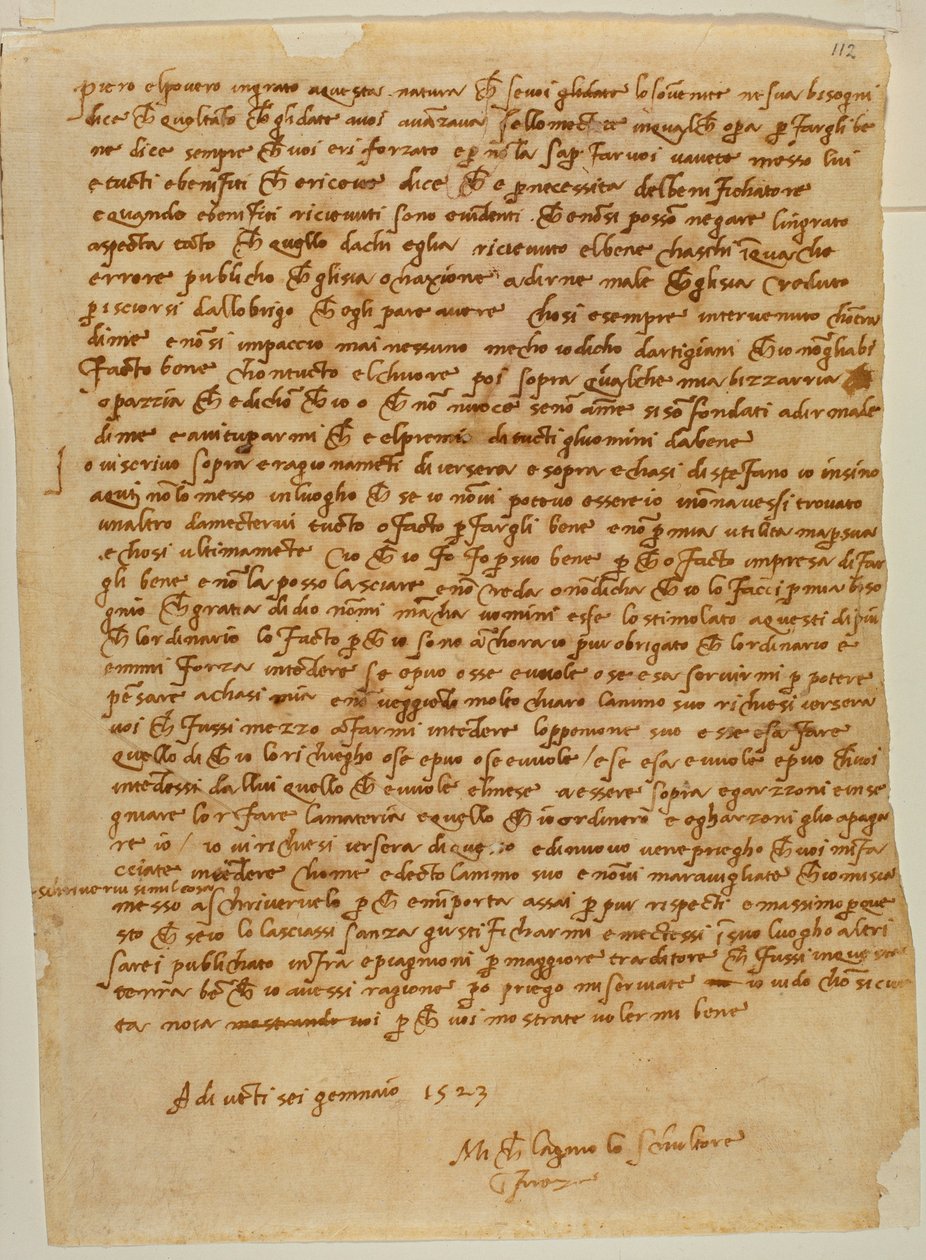 112
Piero el povero ingrato a questa natura che se voi gli date lo sovenite ne sua bisogni
dice che quel tāto che gli date a voi avāzava se llo mectete in qualche opera per fargli be
ne dice sempre che voi eri forzato e per nō la saper far voi v avete messo lui
e tucti e benifiti che e ricieve dice che e per necessita del benifichatore
e quando e benifiti ricievuti sono evidenti che e nō si possō negare l ingrato
aspecta tāto che quello da chi egli a ricievuto el bene chaschi ī qualche
errore publicho che gli sia ochaxione a dirne male che gli sia creduto
per isciorsi dall obrigo che gli pare avere chosi e sempre intervenuto chōtra
di me e nō s impaccio mai nessuno mecho io dicho d artigiani che io nō gli abi
facto bene chon tucto el chuore poi sopra qualche mia bizzarria
o pazzia che e dichō che io o che nō nuoce se nō a me si sō fondati a dir male
di me e a vituparmi che e el premio di tucti gli uomini da bene
io vi scrivo sopra e ragionamēti d iersera e sopra e chasi di Stefano io insino
a qui nō l o messo in luogho che se io nō vi potevo essere io nō n avessi trovato
un altro da mectervi tucto o facto per fargli bene e nō per mia utilita ma per sua
e chosi ultimamēte cio che io fo fo per suo bene perche o facto impresa di far
gli bene e nō la posso lasciare e nō creda o nō dicha che io lo facci per mia biso
gnio che gratia di dio nō mi mācha uomini e se lo stimolato a questi di piu
che l ordinario l o facto perche io sono āchora io piu obrigato che l ordinario e
emmi forza intēdere se e puo o sse e vuole o se e sa servirmi per potere
pēsare a chasi mia e nō veggiēdo molto chiaro l animo suo richiesi iersera
voi che fussi mezzo a farmi intēdere l oppenione sua e sse e sa fare
quello di che io lo richiegho o se e puo o se e vuole / e se e sa e vuole e puo che voi
intēdessi da llui quello che e vuole el mese a essere sopra e garzoni e inse
gniare lor fare la materia e quello che io ordinero e e gharzoni gli o a pagā
re io / io vi richiesi iersera di questo e di nuovo ve ne priegho che voi mi fa
cciate intēdere chome e decto l animo suo e nō vi maravigliate che io mi sia
scrivervi simil cosa
messo a schrivervelo perche e m importa assai per piu rispecti e massimo per que
sto che se io lo lasciassi sanza gustificharmi e mectessi ī suo luogho altri
sarei publichato infra e piagnioni per maggiore traditore che fussi in questa
terra bē che io avessi ragione però priego mi serviate io vi do chō sicur
ta noia mostrando voi perche voi mostrate volermi bene
A di vēti sei gennaio 1523
Michelagnio lo schultore